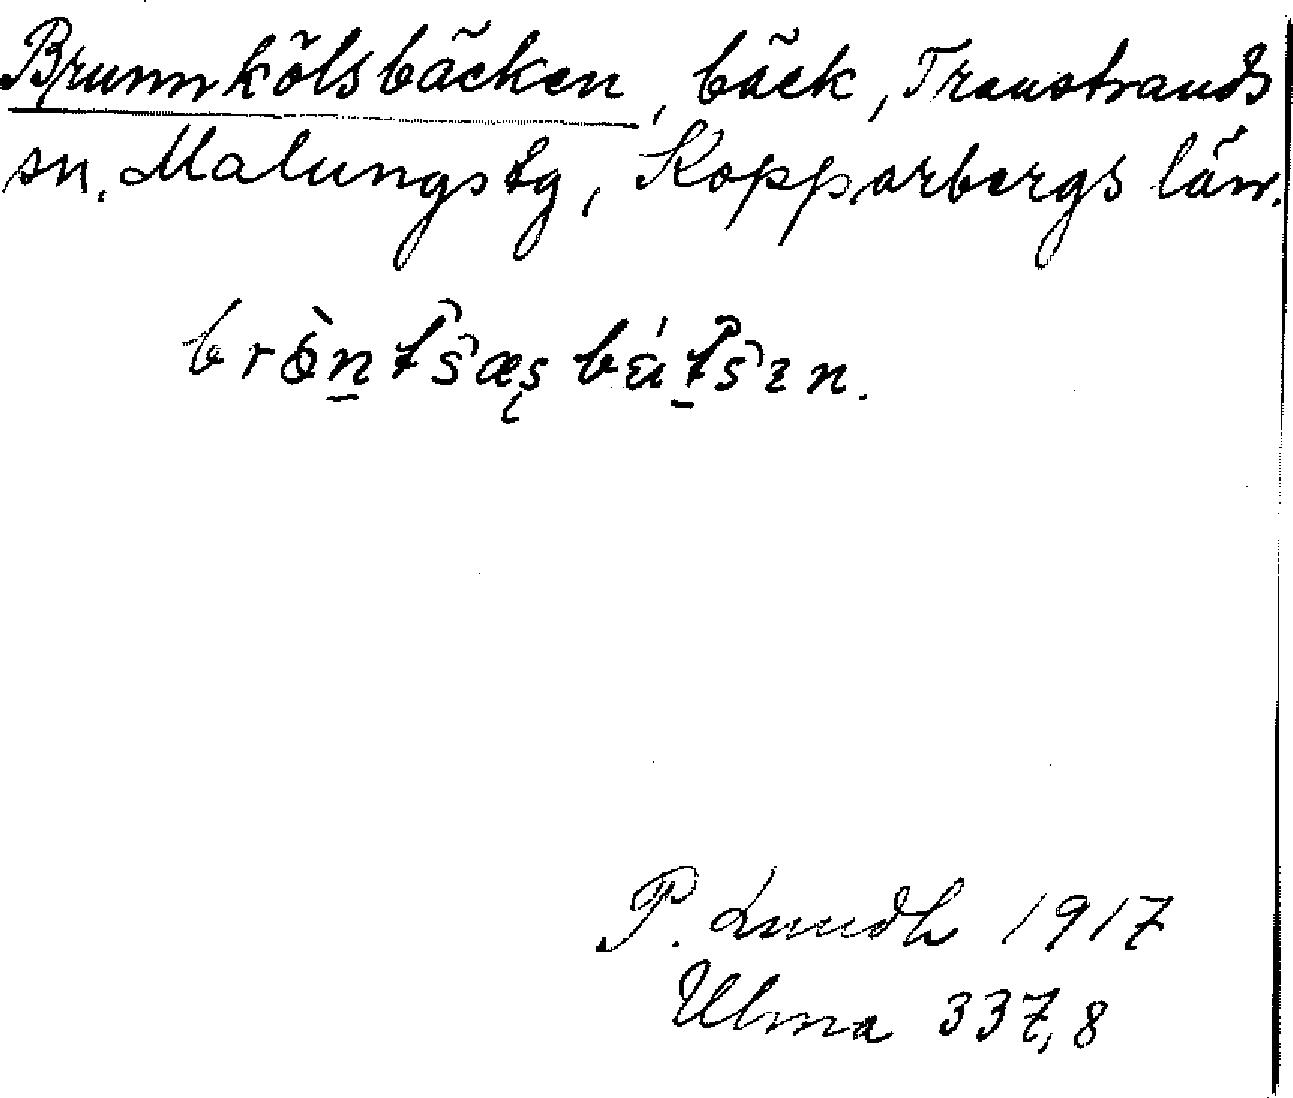 Brunnkölsbäcken, bäck, Transtrands
sn. Malungs tg, Kopparbergs län.
P. Lundh 1917
Ulma 337,8